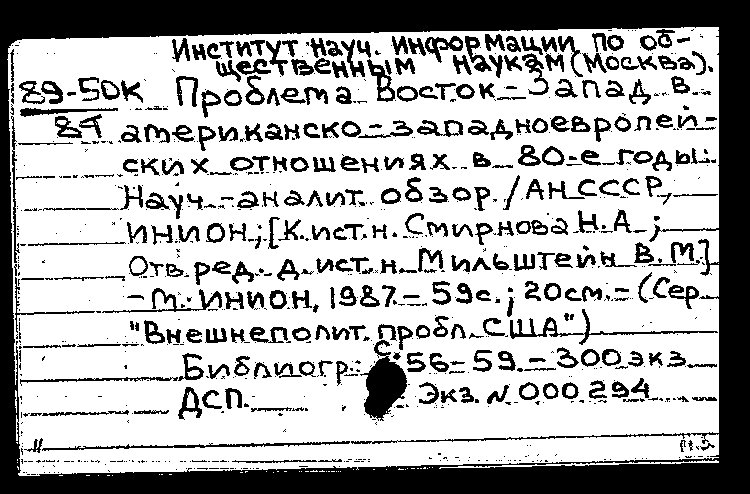 Институт науч. информации по об-
щественным наукам (Москва).
89-50К Проблема Восток-Запад в
8Т американско-западноевропей-
ских отношениях в 80-е годы:
Науч.-аналит. обзор. /АН СССР,
ИНИОН; [К.ист.н. Смирнова Н.А.;
Отв. ред. д.ист.н. Мильштейн В.М.]
- М.: ИНИОН, 1987. - 59с.; 20см. - (Сер.
"Внешнеполит. пробл. США")
Библиогр.: с. 56-59. - 300 экз.
ДСП. Экз. N 000294